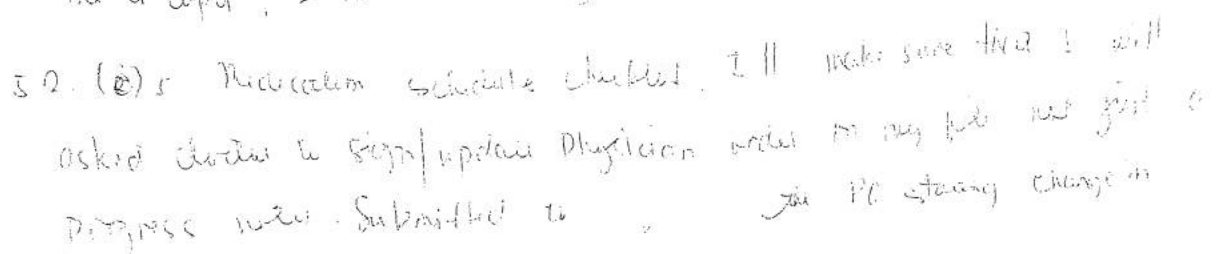 52. (e) 5 Medication schedule checklist. I ll make sure that I will
asked doctor to sign/update Physician order in my file not just a
progress note. Submitted to the PC stating change in